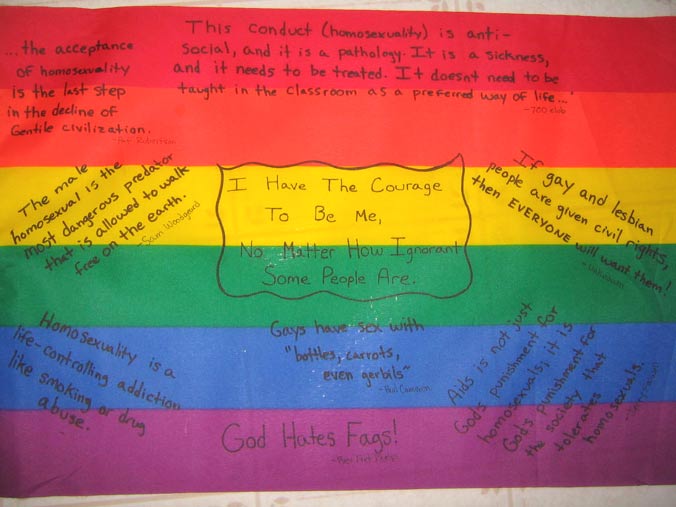 ...the acceptance
of homosexuality
is the last step
in the decline of
Gentile civilization.
-Pat Robertson
This conduct (homosexuality) is anti-
social, and it is a pathology. It is a sickness,
and it needs to be treated. It doesnt need to be
taught in the classroom as a preferred way of life...
-700 club
The male
homosexual is the
most dangerous predator
that is allowed to walk
free on the earth.
I Have The Courage
To Be Me,
No Matter How Ignorant
Some People Are.
If gay and lesbian
people are given civil rights,
then EVERYONE will want them!
-Unknown
Homosexuality is a
life-controlling addiction
like smoking or drug
abuse.
Gays have sex with
"bottles, carrots,
even gerbils"
-Paul Cameron
Aids is not just
God's punishment for
homosexuals; it is
God's punishment for
the society that
tolerates
homosexuals.
God Hates Fags!